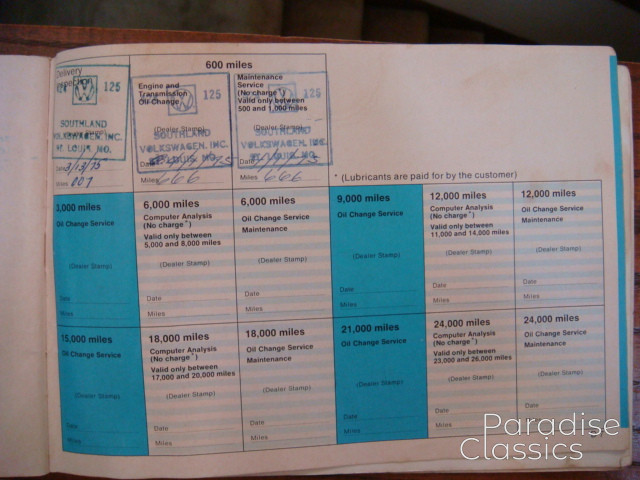 600 miles
Delivery
Inspection
125
SOUTHLAND
VOLKSWAGEN, INC.
ST. LOUIS, MO.
Date 3/13/75
Miles 007
Engine and
Transmission
Oil Change
125
(Dealer Stamp)
SOUTHLAND
VOLKSWAGEN, INC.
ST. LOUIS, MO.
Date
Miles 666
Maintenance
Service
(No charge*)
Valid only between
500 and 1,000 miles
125
(Dealer Stamp)
SOUTHLAND
VOLKSWAGEN, INC.
ST. LOUIS, MO.
Date
Miles 666
* (Lubricants are paid for by the customer)
3,000 miles
Oil Change Service
(Dealer Stamp)
Date
Miles
6,000 miles
Computer Analysis
(No charge*)
Valid only between
5,000 and 8,000 miles
(Dealer Stamp)
Date
Miles
6,000 miles
Oil Change Service
Maintenance
(Dealer Stamp)
Date
Miles
9,000 miles
Oil Change Service
(Dealer Stamp)
Date
Miles
12,000 miles
Computer Analysis
(No charge*)
Valid only between
11,000 and 14,000 miles
(Dealer Stamp)
Date
Miles
12,000 miles
Oil Change Service
Maintenance
(Dealer Stamp)
Date
Miles
15,000 miles
Oil Change Service
(Dealer Stamp)
Date
Miles
18,000 miles
Computer Analysis
(No charge*)
Valid only between
17,000 and 20,000 miles
(Dealer Stamp)
Date
Miles
18,000 miles
Oil Change Service
Maintenance
(Dealer Stamp)
Date
Miles
21,000 miles
Oil Change Service
(Dealer Stamp)
Date
Miles
24,000 miles
Computer Analysis
(No charge*)
Valid only between
23,000 and 26,000 miles
(Dealer Stamp)
Date
Miles
24,000 miles
Oil Change Service
Maintenance
(Dealer Stamp)
Date
Paradise
Classics